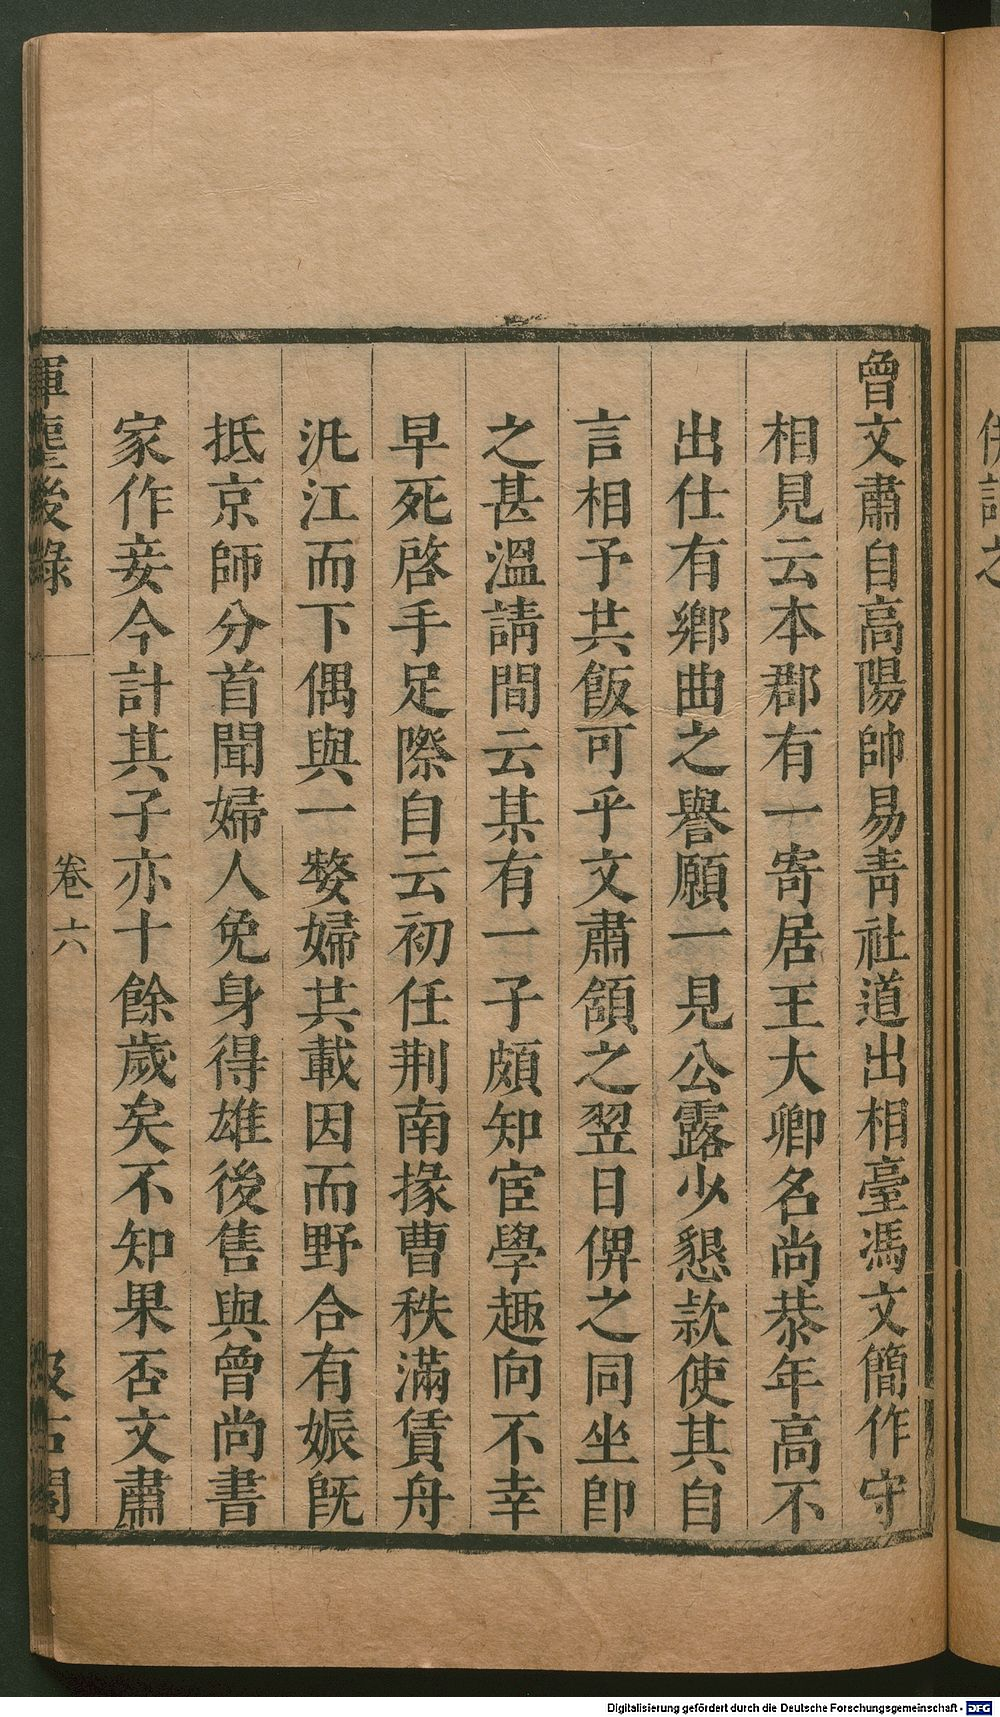 曾文肅自高陽帥易靑社道出相臺馮文簡作守
相見云本郡有一寄居王大卿名尚恭年高不
出仕有鄉曲之譽願一見公露少懇款使其自
言相予共飯可乎文肅頷之翌日俾之同坐卽
之甚溫請間云某有一子頗知宦學趣向不幸
早死啓手足際自云初任荆南掾曹秩滿賃舟
汎江而下偶與一嫠婦共載因而野合有娠旣
抵京師分首聞婦人免身得雄後售與曾尚書
家作妾今計其子亦十餘歲矣不知果否文肅
揮麈後錄
卷六
汲古閣
Digitalisierung gefördert durch die Deutsche Forschungsgemeinschaft - DFG